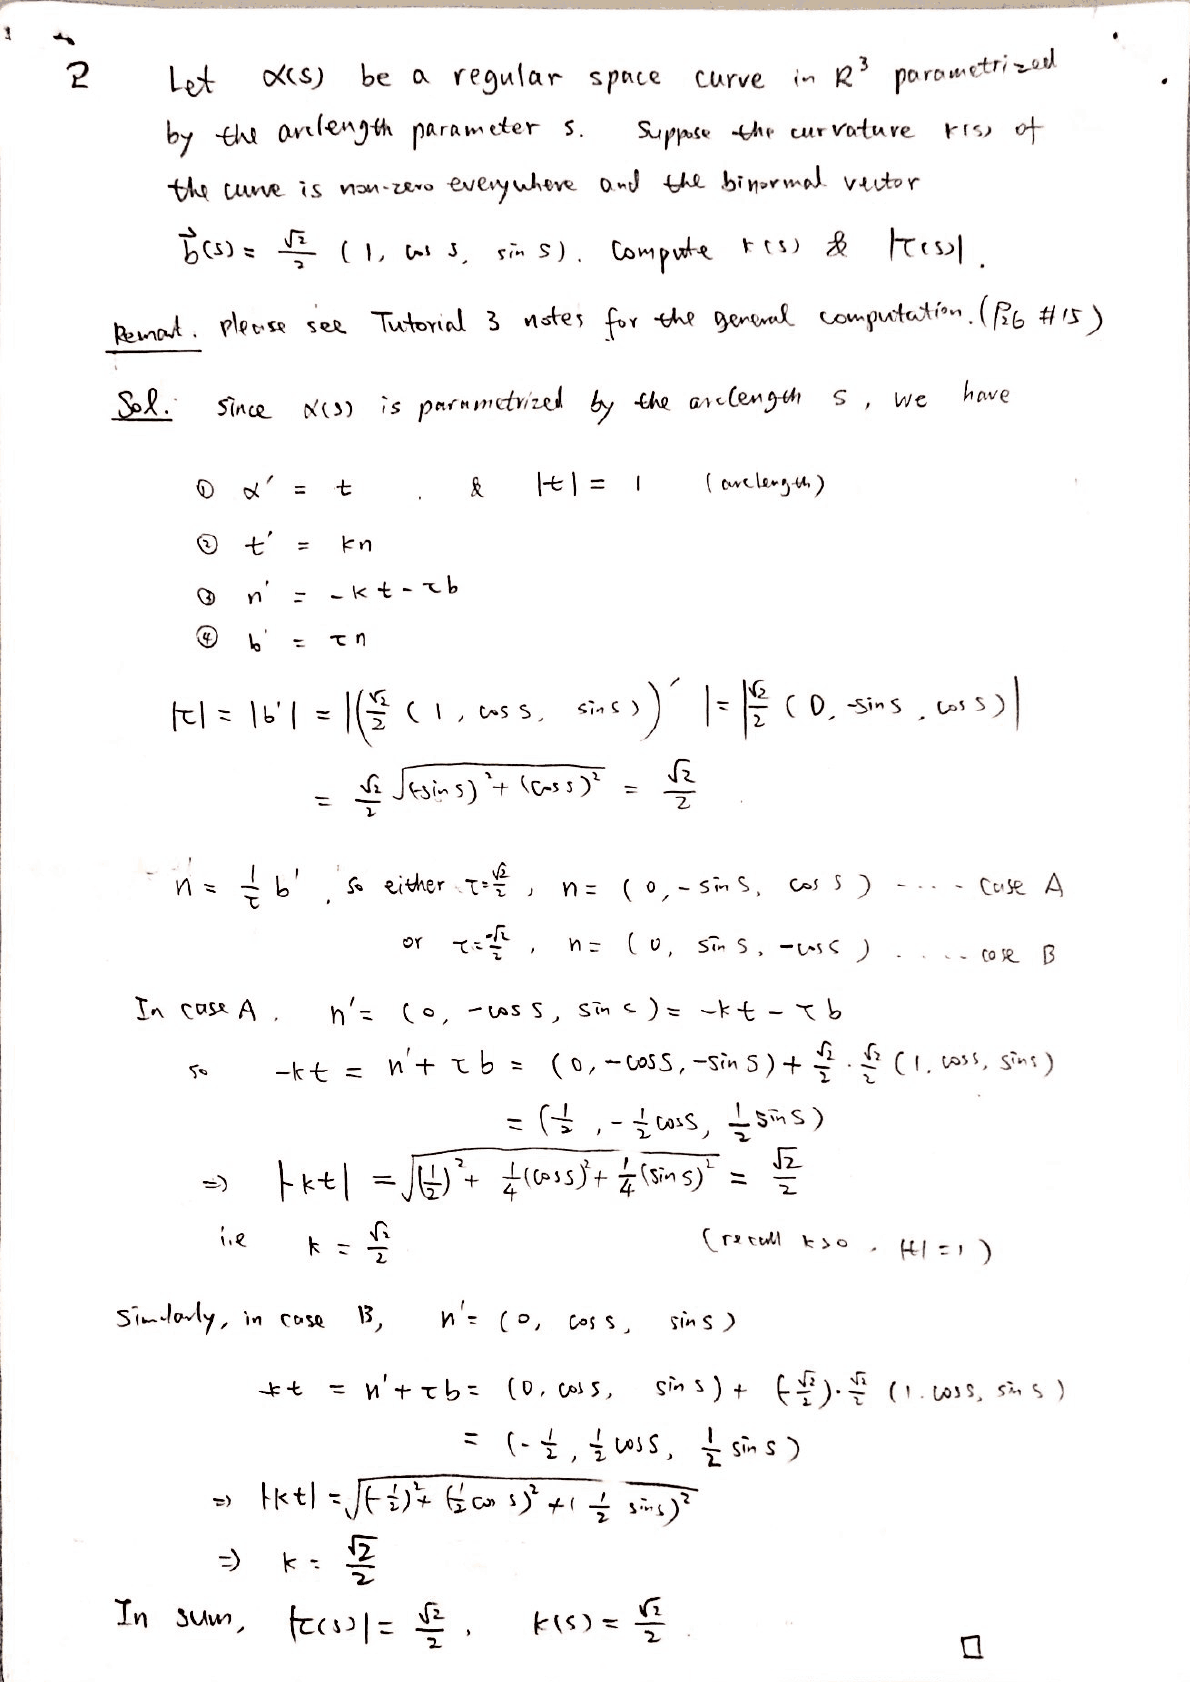 2 Let α(s) be a regular space curve in R³ parametrized
by the arclength parameter s. Suppose the curvature κ(s) of
the curve is non-zero everywhere and the binormal vector
b⃗(s) = √2/2 (1, cos s, sin s). Compute κ(s) & |τ(s)|.
Remark. please see Tutorial 3 notes for the general computation. (P26 #15)
Sol. Since α(s) is parametrized by the arclength s, we have
① α' = t . & |t| = 1 (arclength)
② t' = kn
③ n' = -kt - τb
④ b' = τn
|τ| = |b'| = |(√2/2 (1, cos s, sin s))'| = |√2/2 (0, -sin s, cos s)|
= √2/2 √((-sin s)² + (cos s)²) = √2/2
n = 1/τ b', so either τ = √2/2, n = (0, -sin s, cos s) .... case A
or τ = -√2/2, n = (0, sin s, -cos s) ..... case B
In case A, n' = (0, -cos s, sin s) = -kt - τb
so -kt = n' + τb = (0, -cos s, -sin s) + √2/2 · √2/2 (1, cos s, sin s)
= (1/2, -1/2 cos s, 1/2 sin s)
⇒ |-kt| = √((1/2)² + 1/4 (cos s)² + 1/4 (sin s)²) = √2/2
i.e k = √2/2 (recall k>0, |t|=1)
Similarly, in case B, n' = (0, cos s, sin s)
-kt = n' + τb = (0, cos s, sin s) + (-√2/2) · √2/2 (1, cos s, sin s)
= (-1/2, 1/2 cos s, 1/2 sin s)
⇒ |-kt| = √((-1/2)² + (1/2 cos s)² + (1/2 sin s)²)
⇒ k = √2/2
In sum, |τ(s)| = √2/2, k(s) = √2/2. □